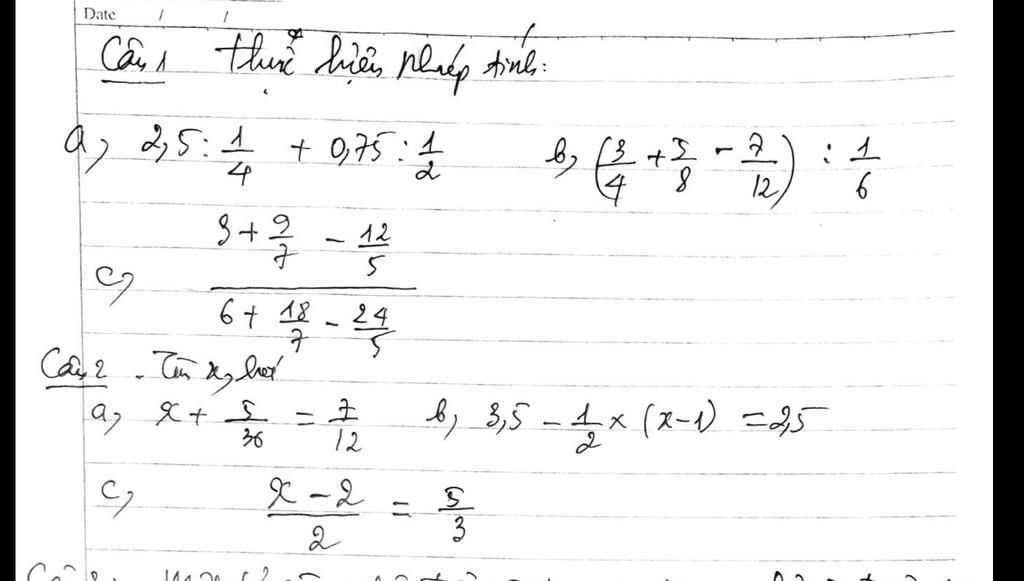 Date / /
Câu 1 Thực hiện phép tính:
a, 2,5 : 1/4 + 0,75 : 1/2 b, (3/4 + 5/8 - 7/12) : 1/6
c, (3 + 9/7 - 12/5)/(6 + 18/7 - 24/5)
Câu 2 - Tìm x, biết
a, x + 5/36 = 7/12 b, 3,5 - 1/2 × (x-1) = 2,5
c, (x - 2)/2 = 5/3